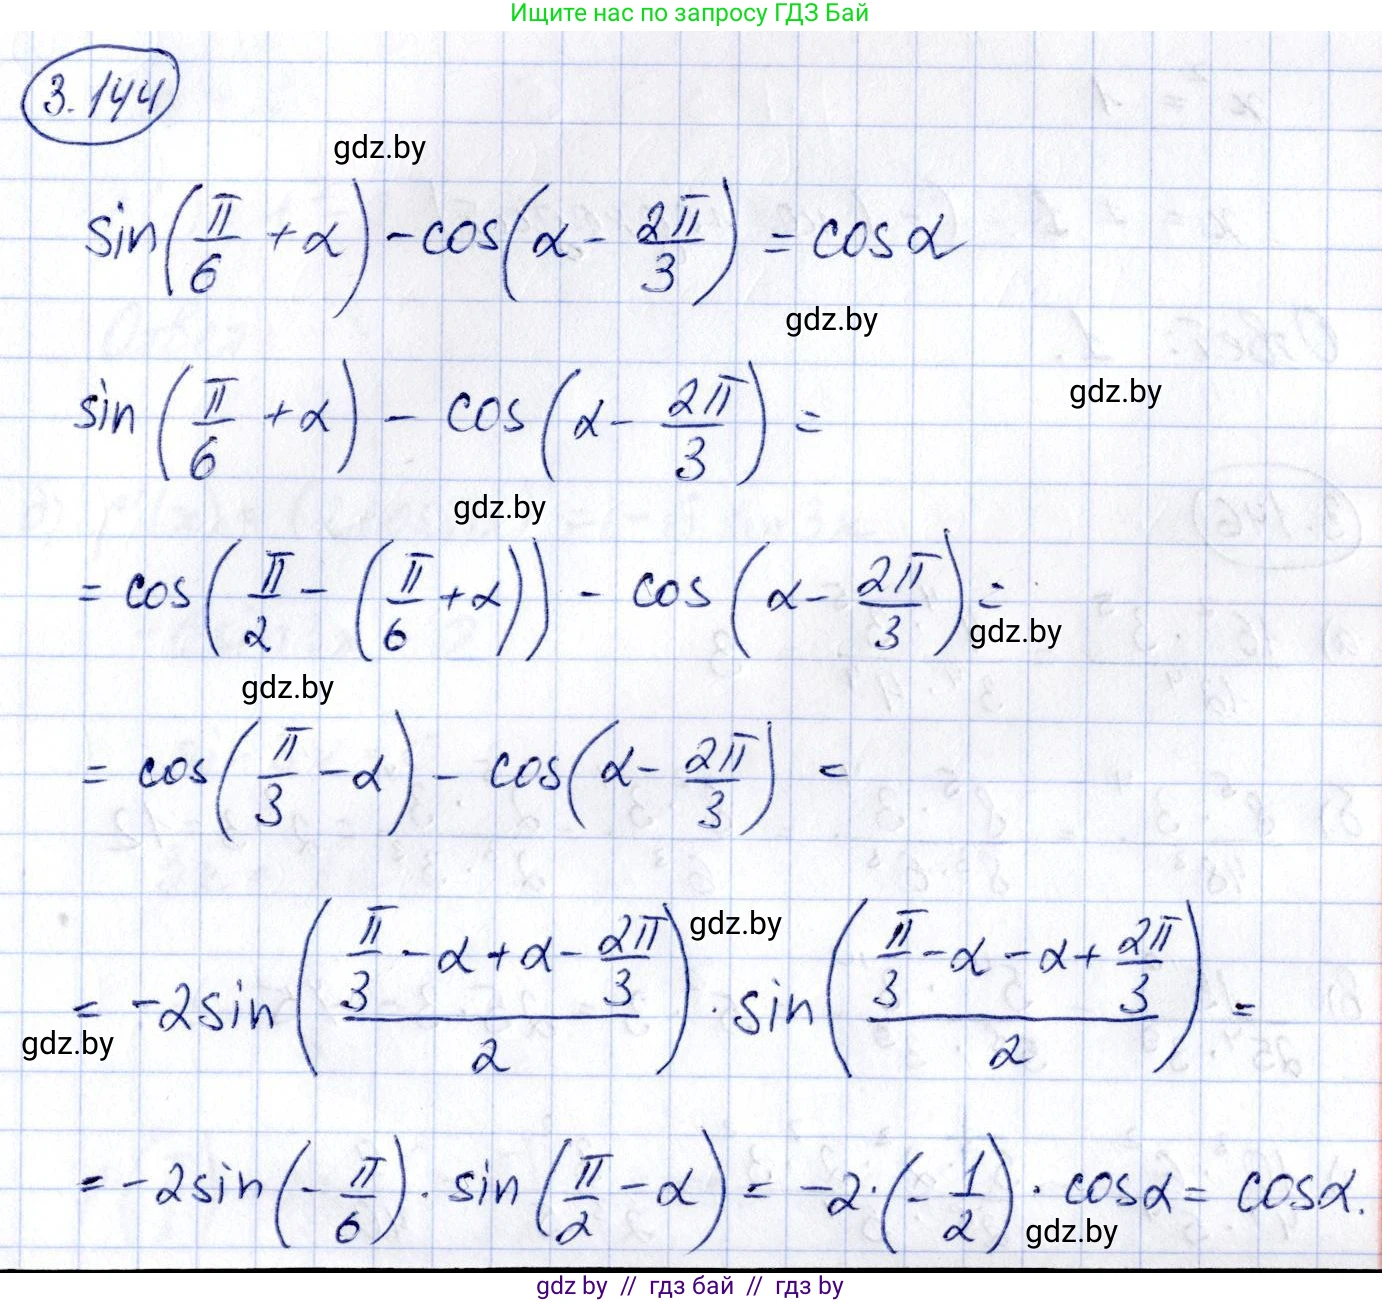 Ищите нас по запросу ГДЗ Бай
3.144
gdz.by
sin(π/6 + α) - cos(α - 2π/3) = cos α
gdz.by
sin(π/6 + α) - cos(α - 2π/3) =
gdz.by
gdz.by
= cos(π/2 - (π/6 + α)) - cos(α - 2π/3) =
gdz.by
gdz.by
= cos(π/3 - α) - cos(α - 2π/3) =
gdz.by
= -2 sin((π/3 - α + α - 2π/3)/2) · sin((π/3 - α - α + 2π/3)/2) =
gdz.by
= -2 sin(-π/6) · sin(π/2 - α) = -2 · (-1/2) · cos α = cos α.
gdz.by
gdz.by // гдз бай // гдз by